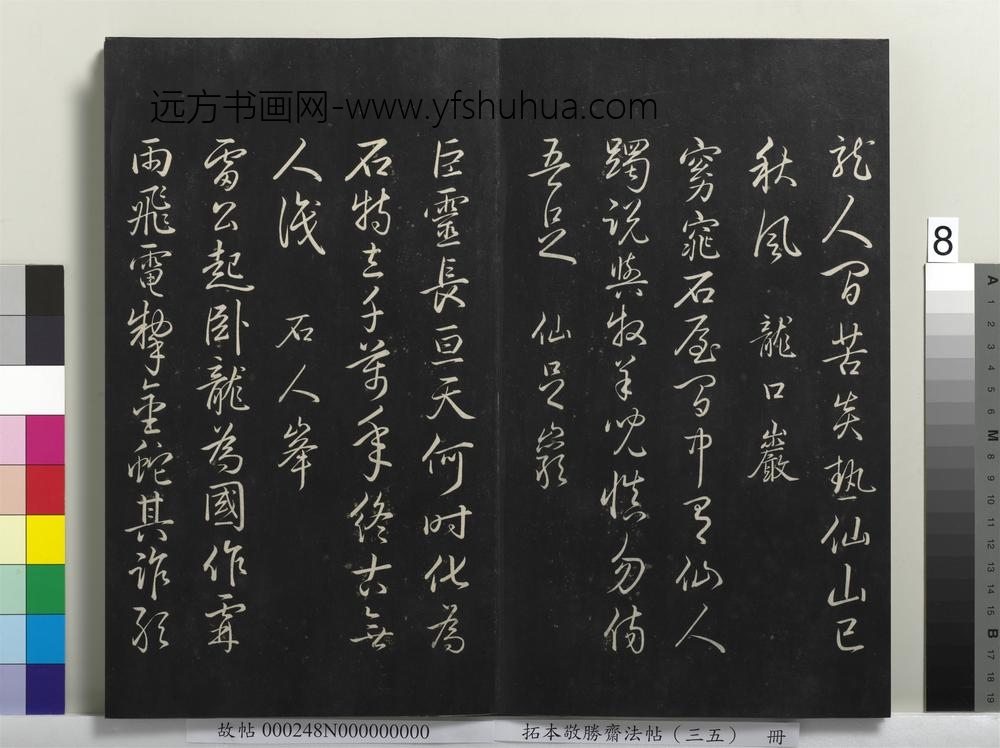 远方书画网-www.yfshuhua.com
龍人間苦炎熱仙山已
秋風 龍口巖
窈窕石屋間中有仙人
躅說與牧羊兒慎勿傷
吾足 仙足巖
巨靈長亘天何時化為
石特立千萬年終古無
人識 石人峯
雷公起卧龍為國作霖
雨飛電掣金蛇其誰敢
8
A
1
2
3
4
5
6
M
8
9
10
11
12
13
14
15
B
17
18
19
故帖 000248N000000000
拓本敬勝齋法帖（三五） 冊